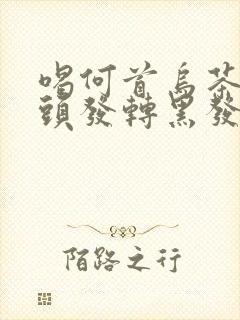 喝何首烏茶
頭發轉黑發
陌路之行